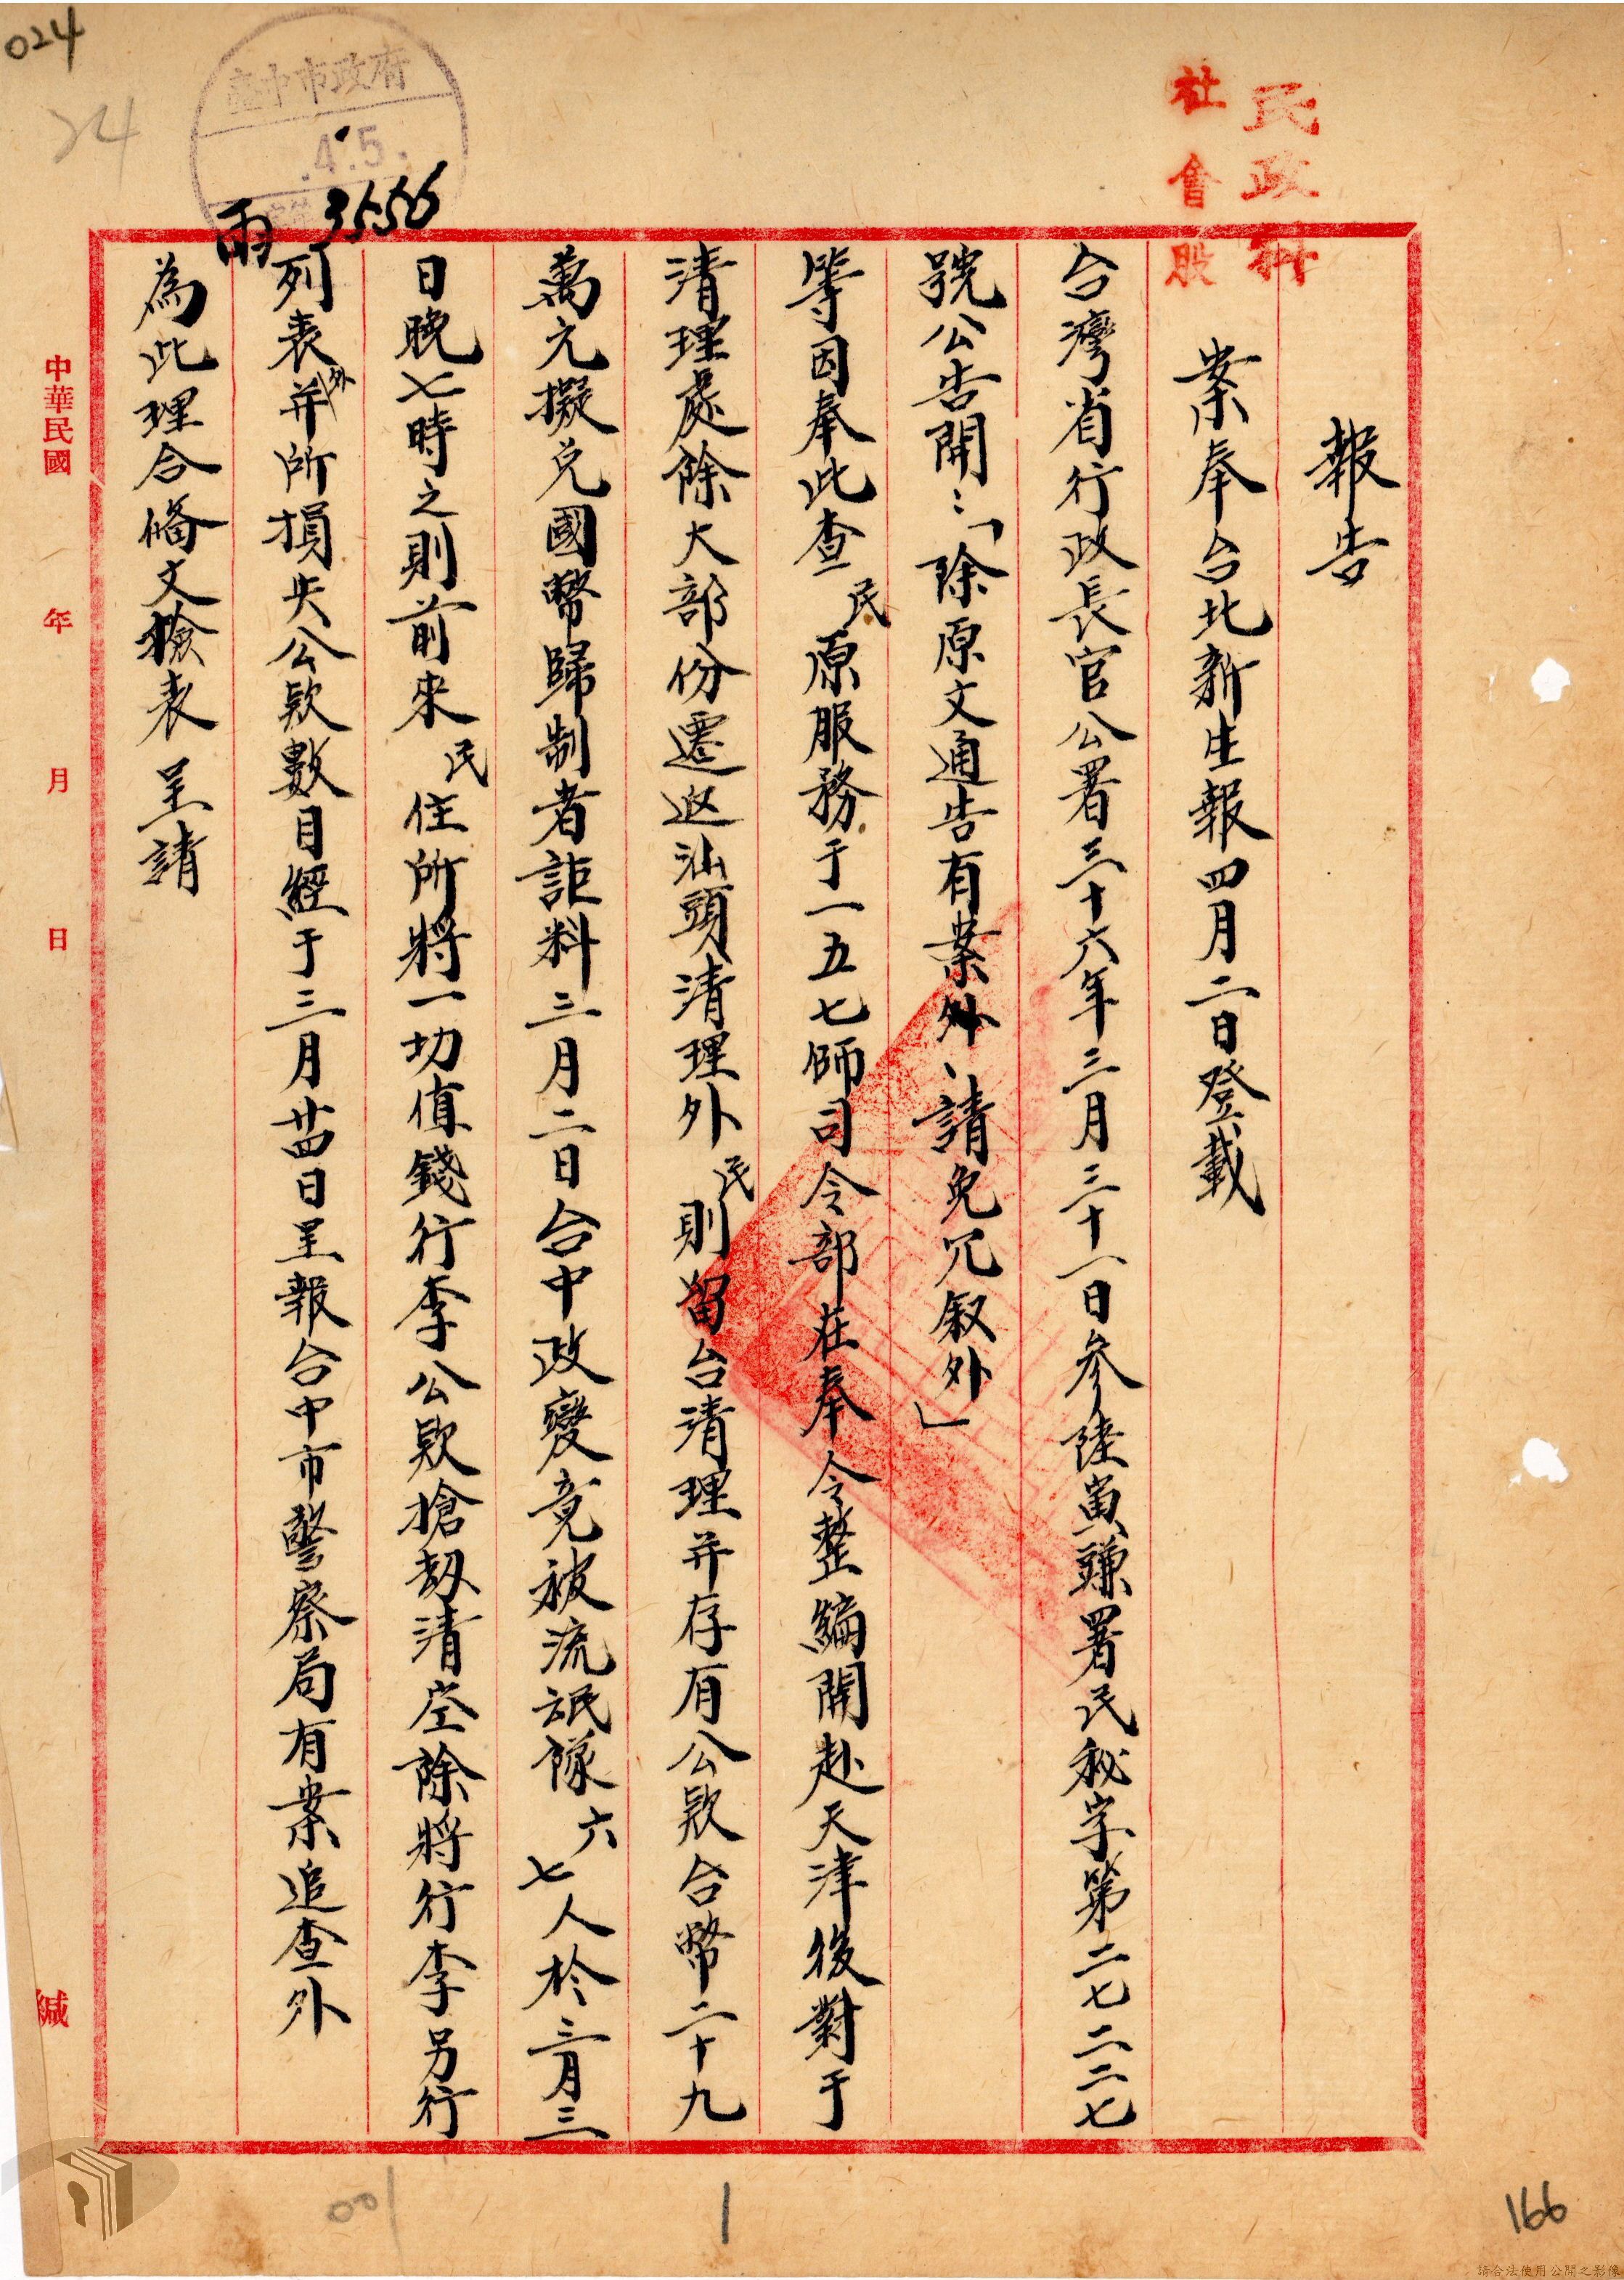 024
24
臺中市政府
.4.5.
雨 3556
民政科
社會股
報告
案奉台北新生報四月二日登載
台灣省行政長官公署三十六年三月三十一日參陸寅謙署民秘字第二七二二七
號公告開：「除原文通告有案外、請免冗叙外」
等因奉此查民原服務于一五七師司令部茲奉令整編開赴天津後對于
清理處除大部份遷返汕頭清理外民則留台清理并存有公欵台幣二十九
萬元擬兑國幣歸制者詎料三月二日台中政變竟被流氓隊六七人於三月三
日晚七時之則前來民住所將一切值錢行李公欵搶刼清空除將行李另行
列表外并所損失公欵數目經于三月廿四日呈報台中市警察局有案追查外
為此理合備文檢表呈請
中華民國 年 月 日
緘
001
1
166
請合法使用公開之影像